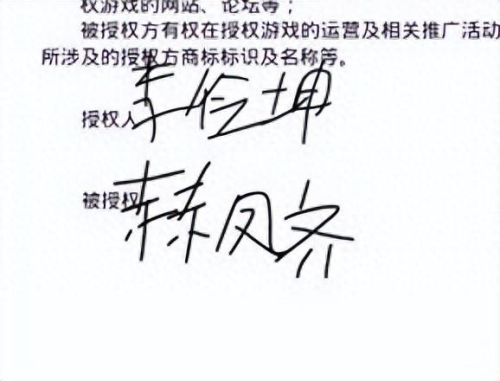 权游戏的网站、论坛等；
被授权方有权在授权游戏的运营及相关推广活动
所涉及的授权方商标标识及名称等。
授权人 李会坤
被授权 赫凤齐